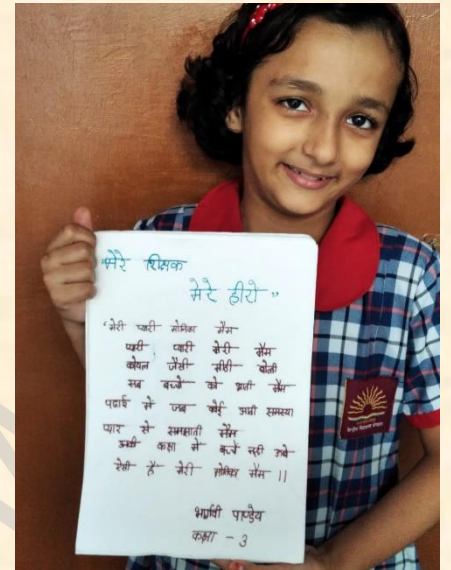 "मेरे शिक्षक
मेरे हीरो"
"मेरी प्यारी मोनिका मैम
प्यारी प्यारी मेरी मैम
कोयल जैसी मीठी बोली
सब बच्चों को भाती मैम
पढाई में जब कोई आती समस्या
प्यार से समझाती मैम
कक्षा में बच्चें नही
ऐसी हैं मेरी मोनिका मैम ||
भार्गवी पाण्डेय
कक्षा - 3
केन्द्रीय विद्यालय संगठन